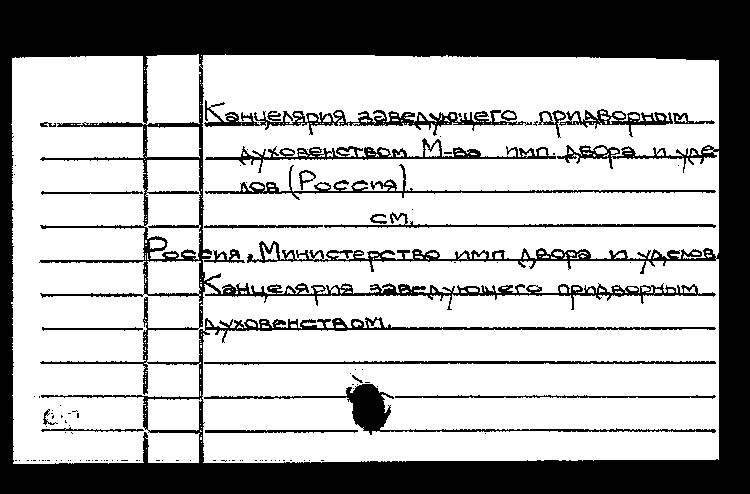 Канцелярия заведующего придворным
духовенством М-ва имп. двора и уде-
лов (Россия).
см.
Россия. Министерство имп. двора и уделов.
Канцелярия заведующего придворным
духовенством.